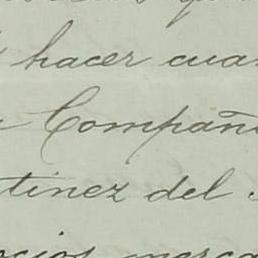 hacer cuan
Compañi
tinez del
ocios merca